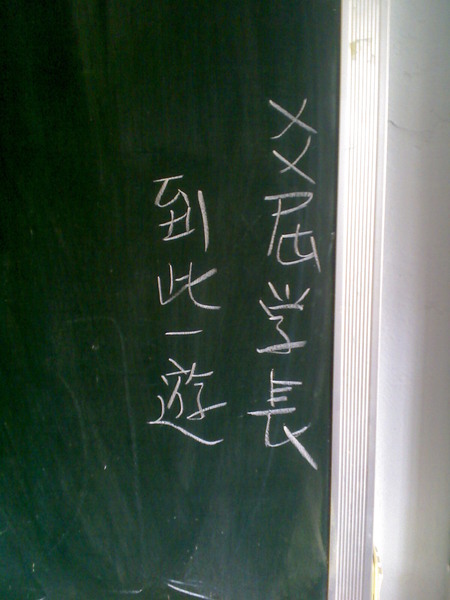 XX屆学長
到此一遊